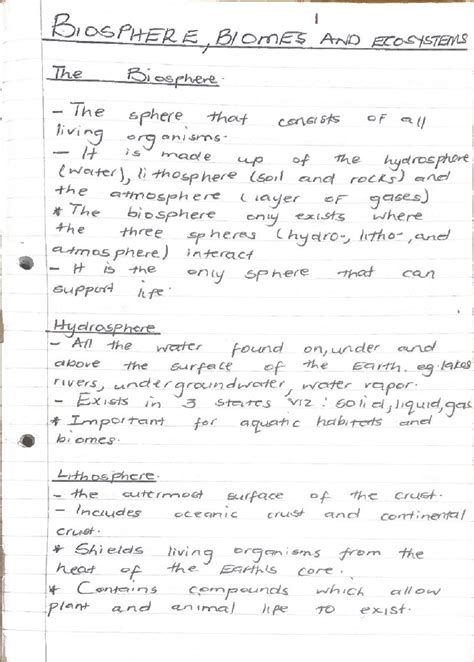 1
BIOSPHERE, BIOMES AND ECOSYSTEMS
The Biosphere.
- The sphere that consists of all
living organisms.
- It is made up of the hydrosphere
(water), lithosphere (soil and rocks) and
the atmosphere (layer of gases)
* The biosphere only exists where
the three spheres (hydro-, litho-, and
atmosphere) interact
- It is the only sphere that can
support life.
Hydrosphere
- All the water found on, under and
above the surface of the Earth. eg. lakes
rivers, underground water, water vapor.
- Exists in 3 states viz: solid, liquid, gas
* Important for aquatic habitats and
biomes.
Lithosphere.
- the outermost surface of the crust.
- Includes oceanic crust and continental
crust.
* Shields living organisms from the
heat of the Earth's core.
* Contains compounds which allow
plant and animal life to exist.